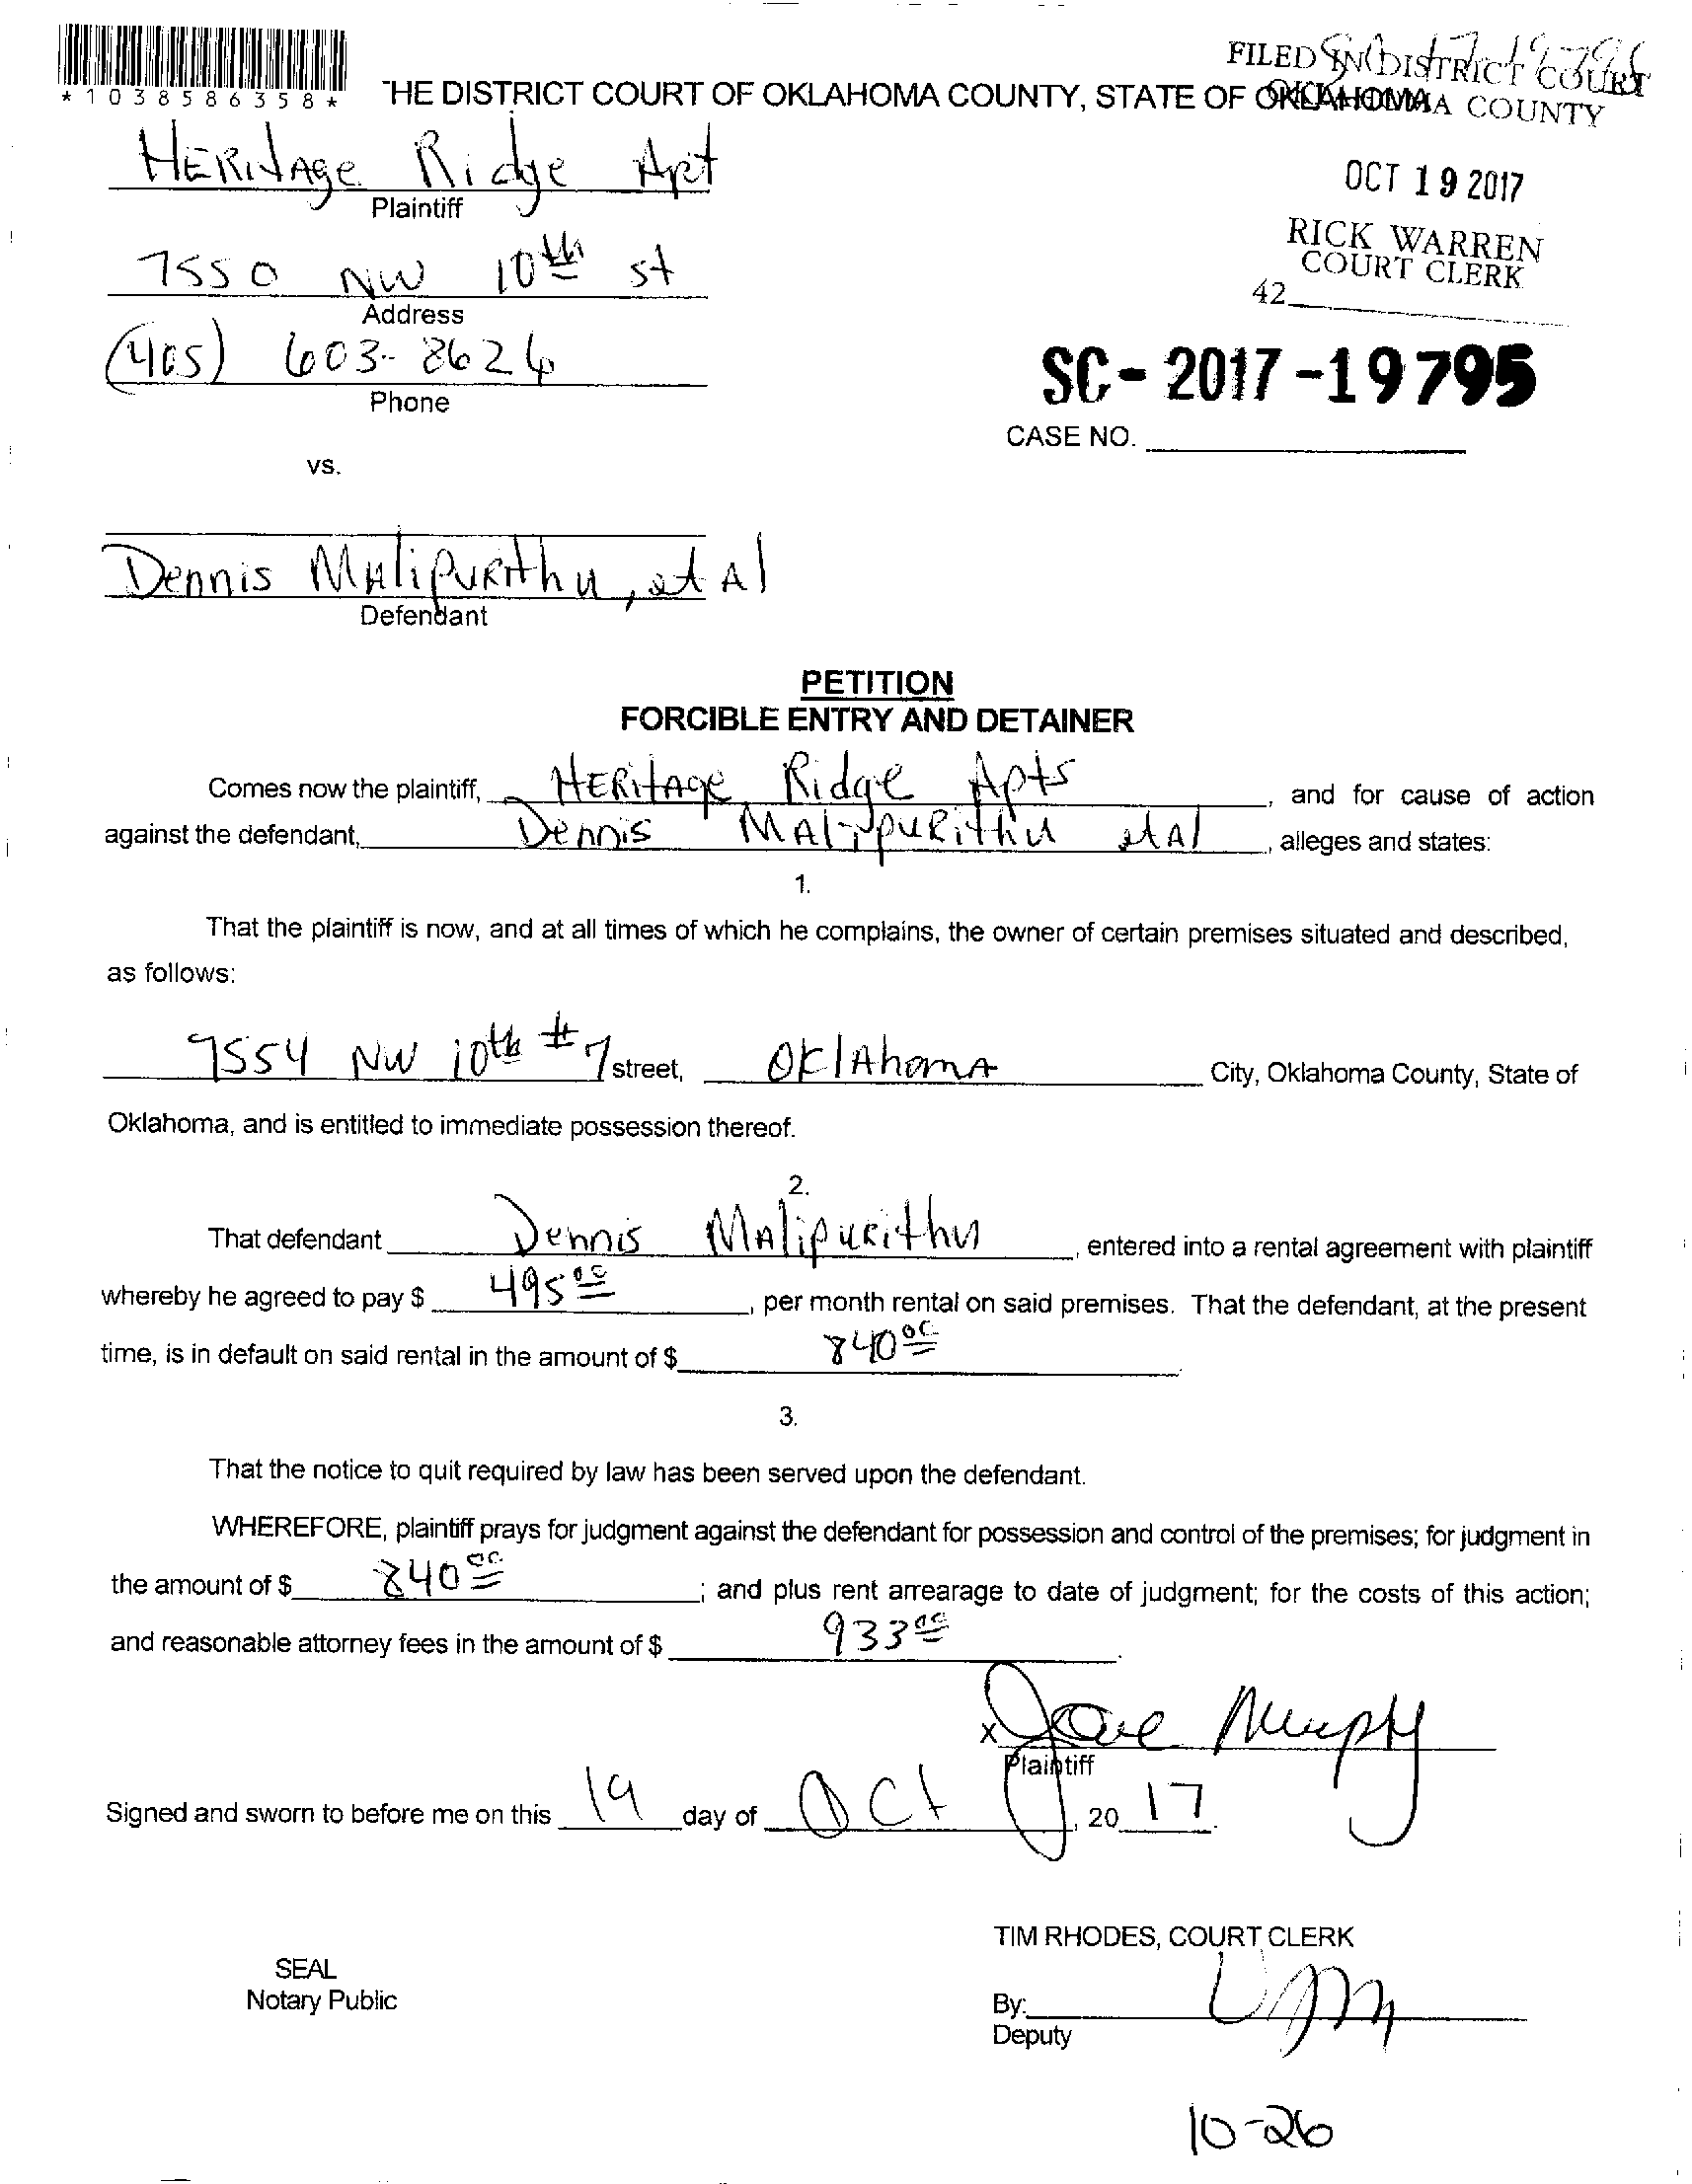 FILED IN DISTRICT COURT
*1038586358*
THE DISTRICT COURT OF OKLAHOMA COUNTY, STATE OF OKLAHOMA
OKLAHOMA COUNTY
HERitAge Ridge Apt
Plaintiff
OCT 19 2017
RICK WARREN
COURT CLERK
42
7550 NW 10th st
Address
(405) 603-8626
Phone
SC-2017-19795
CASE NO.
vs.
Dennis MAlipuRithu, et Al
Defendant
PETITION
FORCIBLE ENTRY AND DETAINER
Comes now the plaintiff, HERitAge Ridge Apts, and for cause of action
against the defendant, Dennis MAlipuRithu et Al, alleges and states:
1.
That the plaintiff is now, and at all times of which he complains, the owner of certain premises situated and described,
as follows:
7554 NW 10th #7 street, OklAhomA City, Oklahoma County, State of
Oklahoma, and is entitled to immediate possession thereof.
2.
That defendant Dennis MAlipuRithu, entered into a rental agreement with plaintiff
whereby he agreed to pay $ 495 00, per month rental on said premises. That the defendant, at the present
time, is in default on said rental in the amount of $ 840 00.
3.
That the notice to quit required by law has been served upon the defendant.
WHEREFORE, plaintiff prays for judgment against the defendant for possession and control of the premises; for judgment in
the amount of $ 840 00; and plus rent arrearage to date of judgment; for the costs of this action;
and reasonable attorney fees in the amount of $ 933 00.
X Murphy
Plaintiff
Signed and sworn to before me on this 19 day of Oct, 20 17.
TIM RHODES, COURT CLERK
SEAL
Notary Public
By:
Deputy
10-26